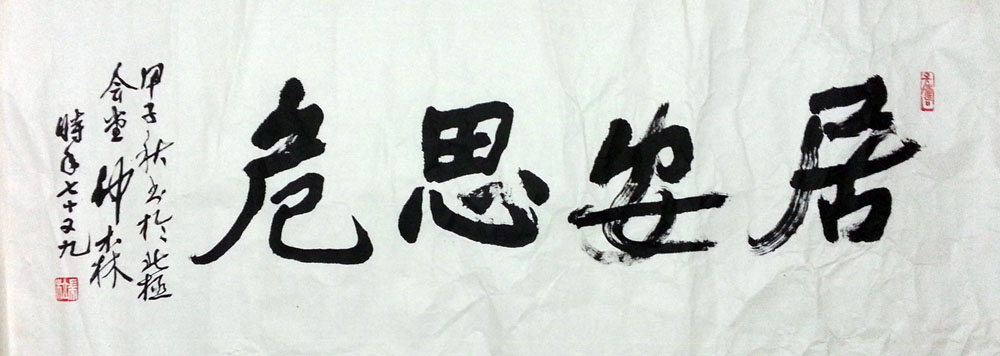 居安思危
甲子秋书於北極
会堂仲森
時年七十又九